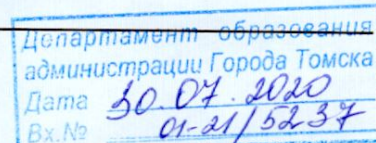 Департамент образования
администрации Города Томска
Дата 30.07.2020
Вх.№ 01-21/5237